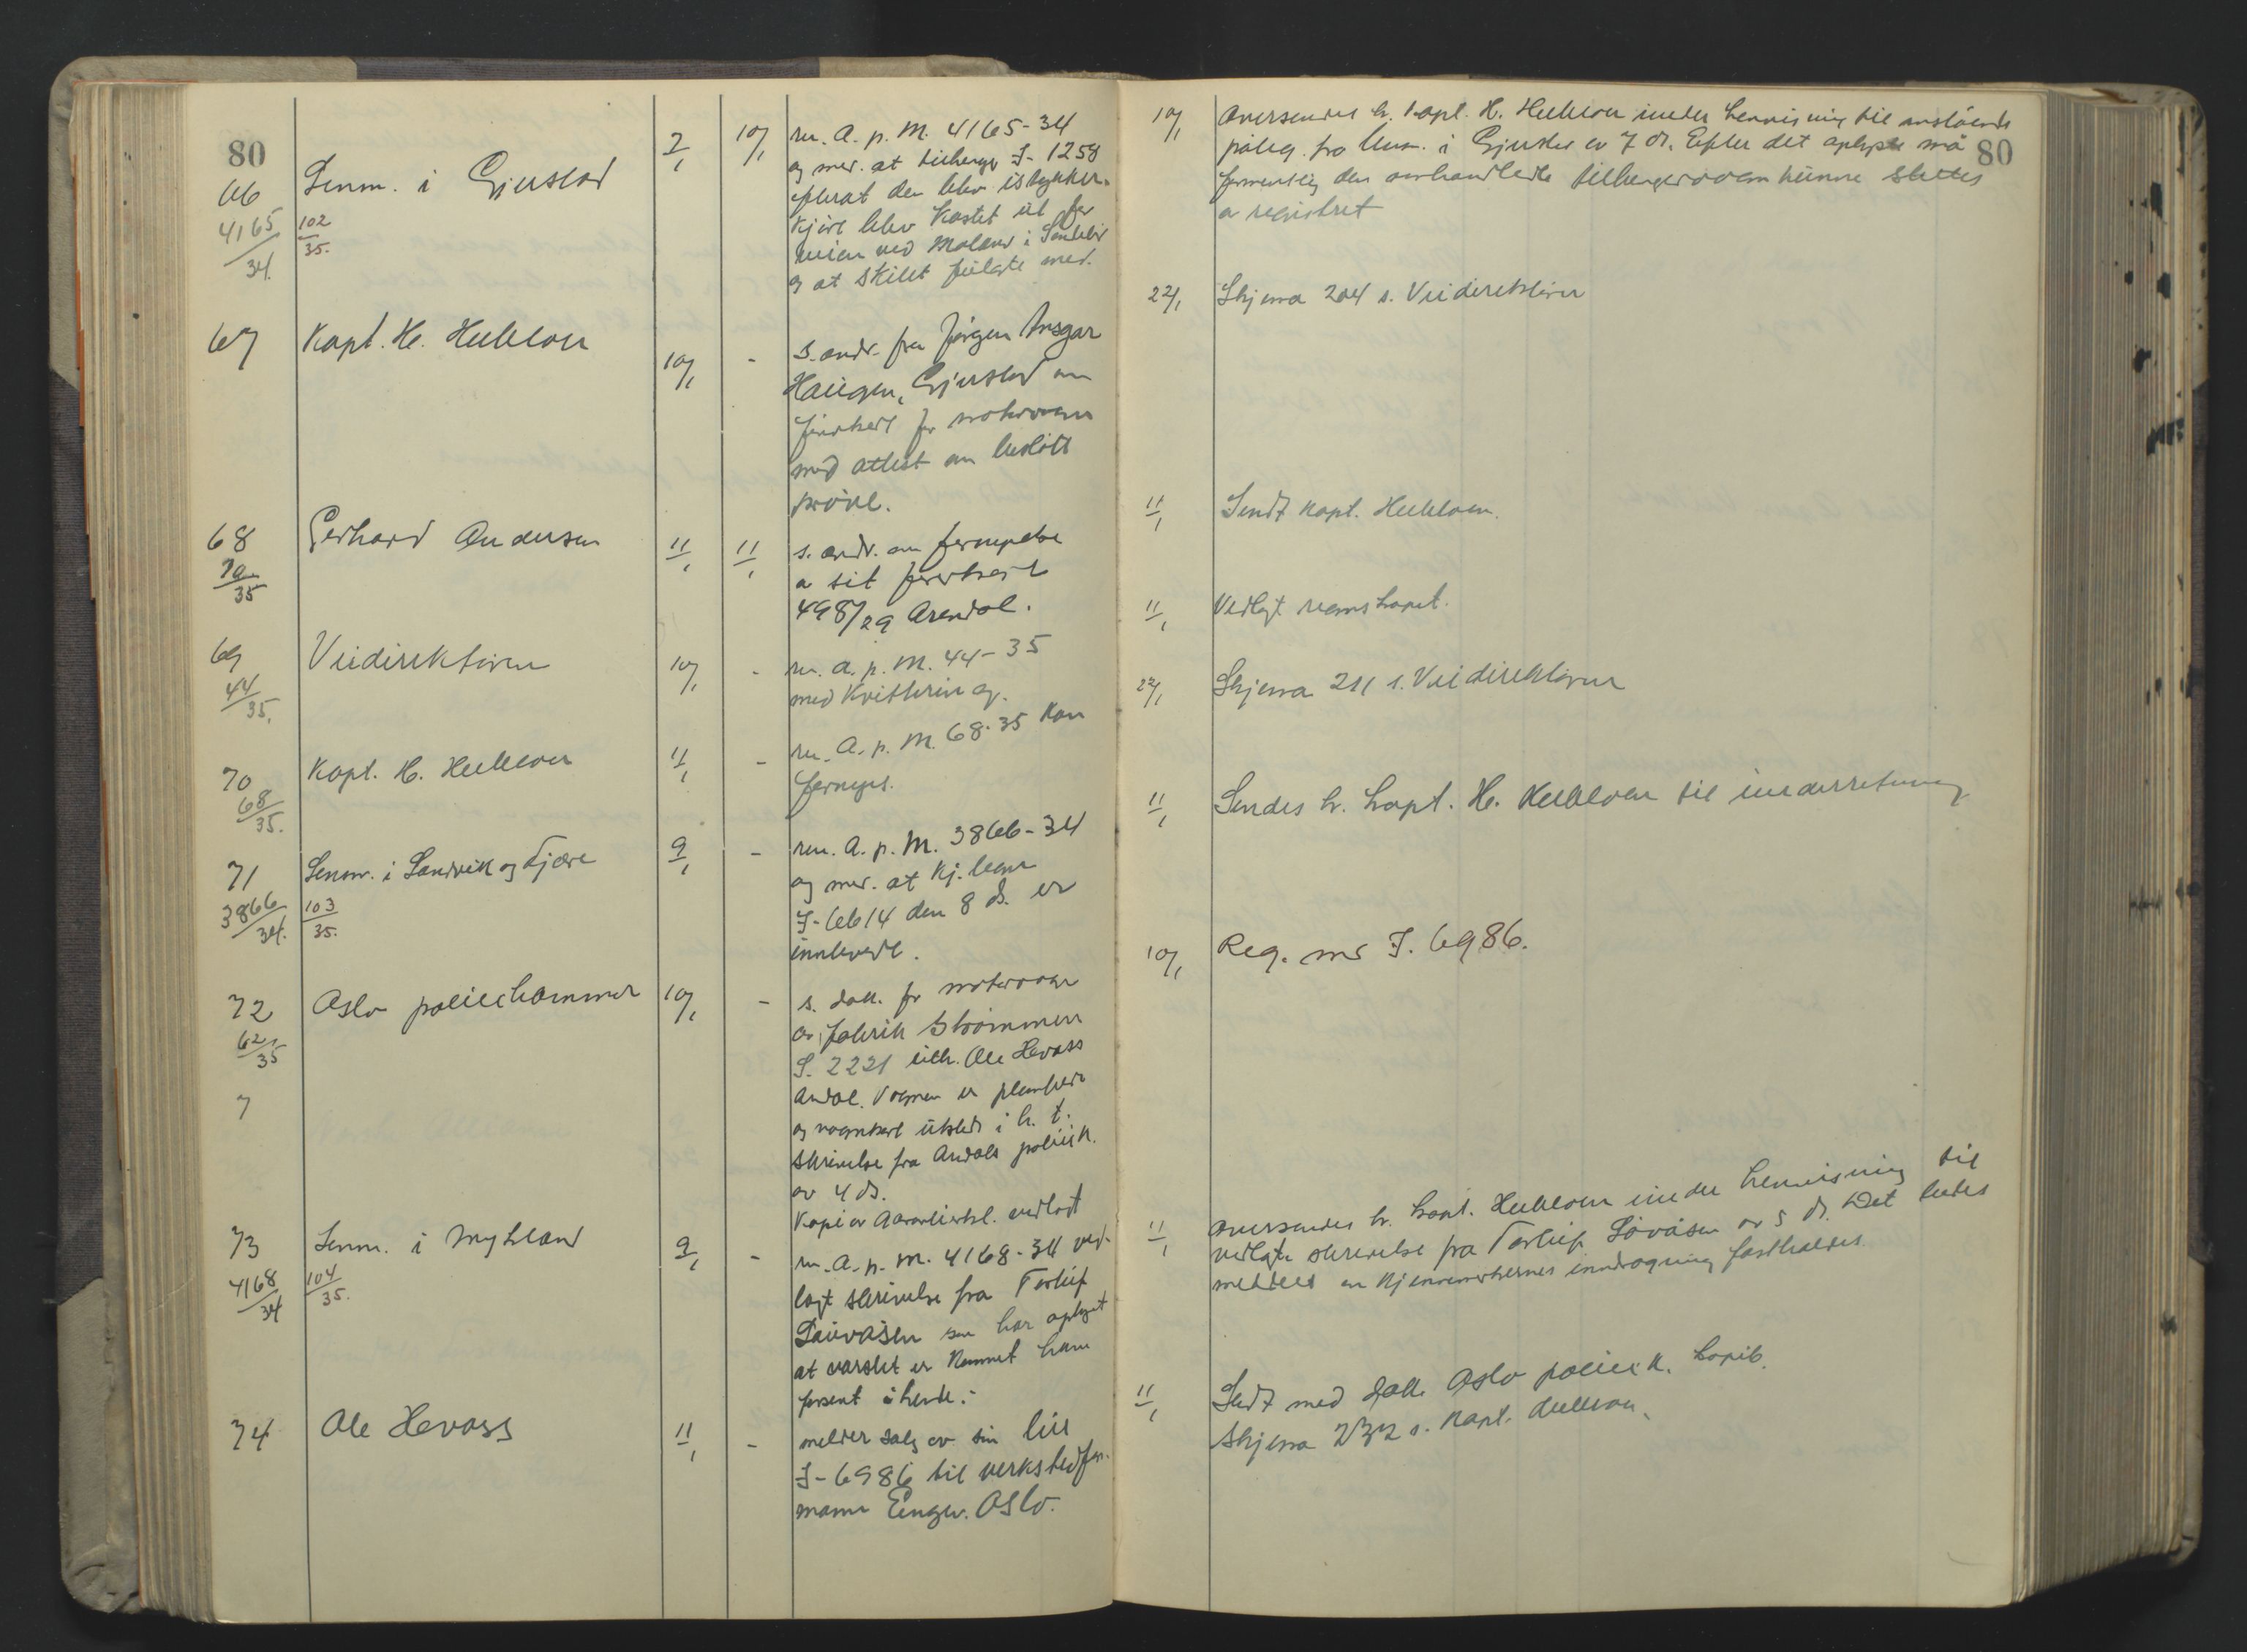 80
66
4165/34.
Lensm. i Gjerstad
102/35.
7/1
10/1
m. A. p. M. 4165-34
og med. at tilhenger I-1258
efterat den blev istykker-
kjørt blev kastet ut for
veien ved Moland i Søndeled
og at skiltet fulgte med.
67
Kapt. H.
10/1
-
s. andr. fra Jørgen Ansgar
Haugen, Gjerstad om
førerkort for motorvogn
med attest om bestått
prøve.
68
70/35
Gerhard Andersen
11/1
11/1
s. andr. om fornyelse
av sit førerkort
4987/29 Arendal.
69
44/35.
Veidirektøren
10/1
-
m. A. p. M. 44-35
med Kvittering.
70
68/35.
Kapt. H.
11/1
-
m. A. p. M. 68-35 kan
fornyes.
71
3866/34.
Lensm. i Landvik og Fjære
103/35.
9/1
-
m. A. p. M. 3866-34
og med. at kj.
I-6614 den 8 ds. er
innlevert.
72
62/35
Oslo politikammer
10/1
-
s. dok. for motorvogn
av fabrik Strømmen
S. 2221 tilh. Ole Hevass
Arendal. Vognen er plombert
og vognkort utstedt i h. t.
skrivelse fra Arendals politik.
av 4 ds.
Kopi av vedlagt
7
73
4168/34
Lensm. i Mykland
104/35.
9/1
-
m. A. p. M. 4168-34 ved-
lagt skrivelse fra Torleif
Lauvåsen som har oplyst
at varslet er kommet ham
forsent ihende.
74
Ole Hevass
11/1
-
melder salg av sin bil
I-6986 til verkstedfor-
mann Oslo.
80
10/1
Oversendes hr. kapt. H. under henvisning til anstående
påteg. fra lensm. i Gjerstad av 7 ds. Efter det oplyste må
formentlig den omhandlede tilhengervogn kunne slettes
av registret
22/1
Skjema 204 s. Veidirektøren
11/1
Sendt kapt.
11/1
Vedlagt regnskapet.
22/1
Skjema 211 s. Veidirektøren
11/1
Sendes hr. kapt. H. til underretning
10/1
Reg. med I. 6986.
11/1
Oversendes hr. kapt. under henvisning til
vedlagte skrivelse fra Torleif Løvåsen av 5 ds. Det bedes
meddelt om kjennemerkernes inndragning fastholdes.
11/1
Sendt med dok. Oslo politik.
Skjema 232 s. kapt.